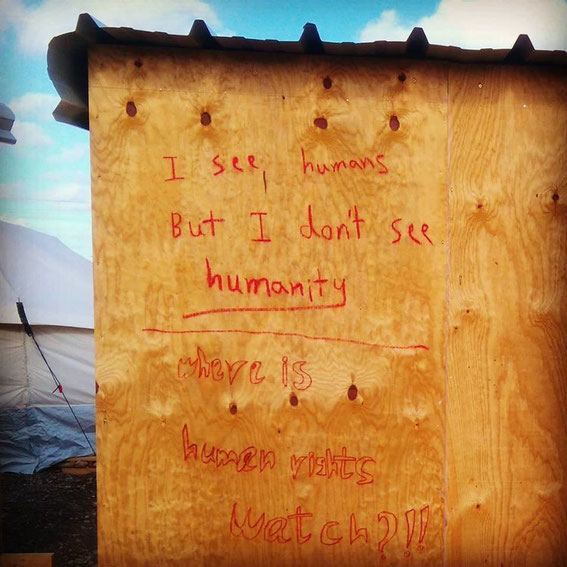 I see, humans
But I don't see
humanity
where is
human rights
watch?!!